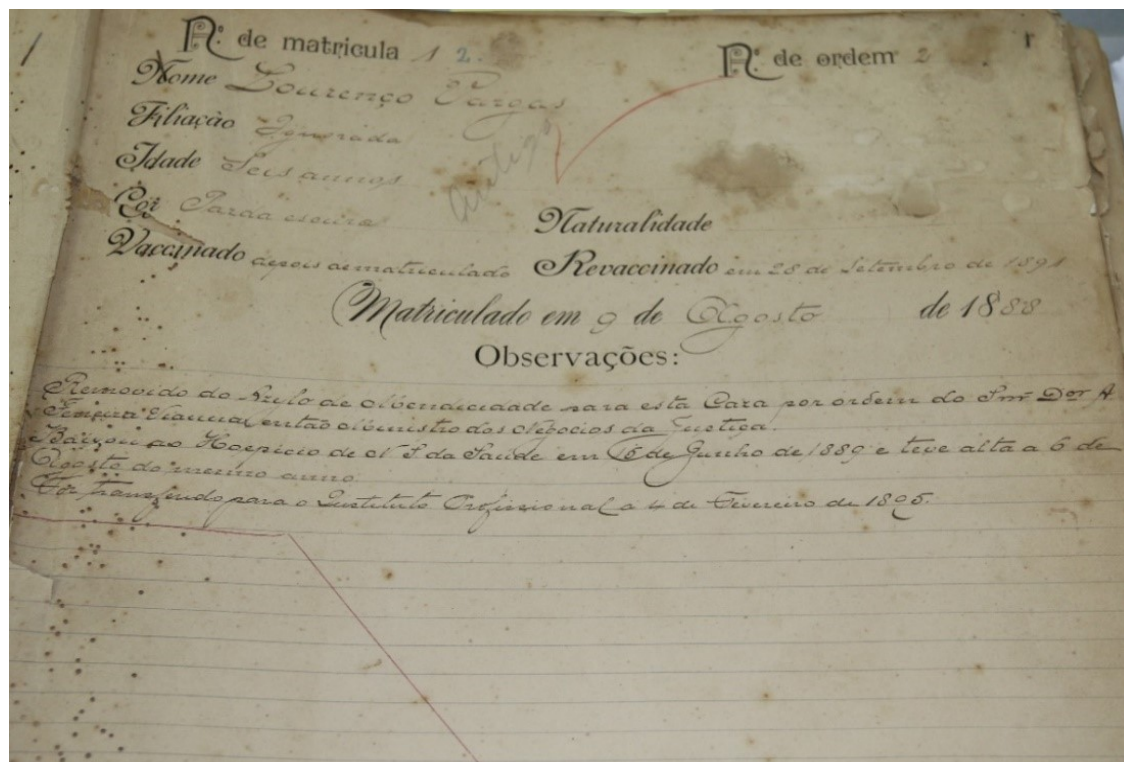 N.º de matricula 1 2. N.º de ordem 2
Nome Lourenço Vargas
Filiação Ignorada
Idade Seis annos
Côr Parda escura
Naturalidade
Vaccinado depois de matriculado Revaccinado em 28 de Setembro de 1891
Matriculado em 9 de Agosto de 1888
Observações:
Removido do Asylo de Mendicidade para esta Caza por ordem do Snr Dor A
Ferreira Vianna, então Ministro dos Negocios da Justiça.
Baixou ao Hospicio de N S da Saude em 15 de Junho de 1889 e teve alta a 6 de
Agosto do mesmo anno.
Foi transferido para o Instituto Profissional a 4 de Fevereiro de 1895.